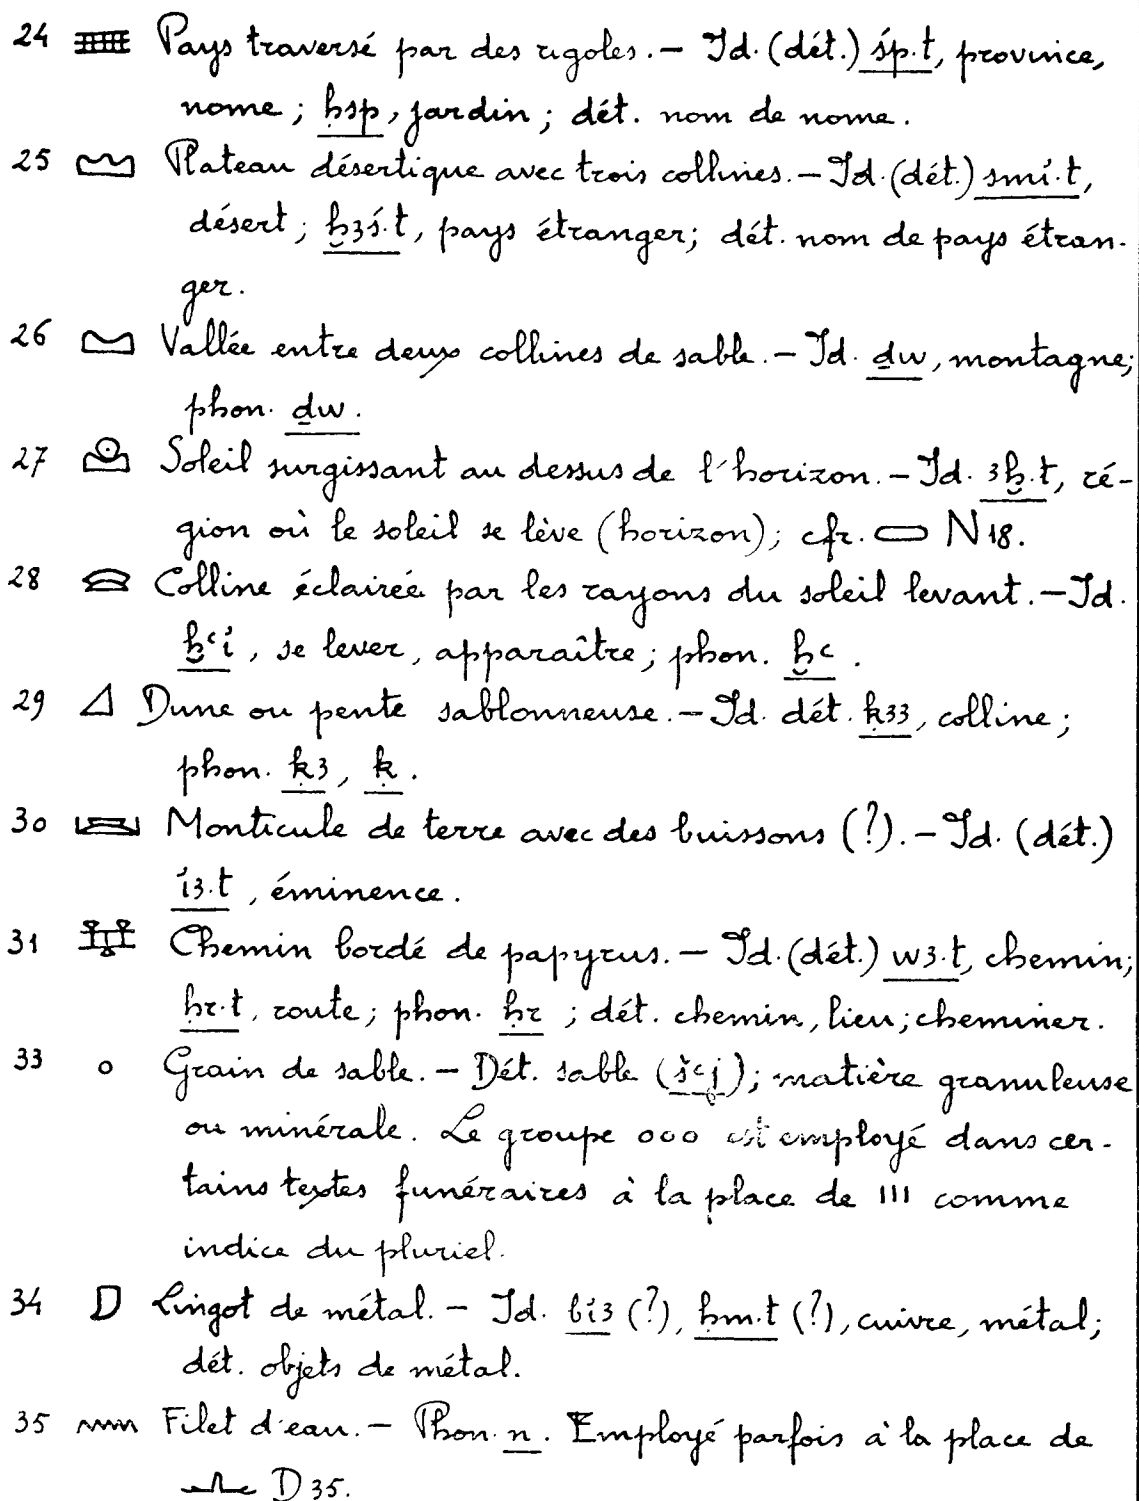 24 𓈈 Pays traversé par des rigoles. — Id. (dét.) śp.t, province,
nome ; ḥsp, jardin ; dét. nom de nome.
25 𓈉 Plateau désertique avec trois collines. — Id. (dét.) smı͗.t,
désert ; ḫꜣś.t, pays étranger; dét. nom de pays étran-
ger.
26 𓈋 Vallée entre deux collines de sable. — Id. ḏw, montagne;
phon. ḏw.
27 𓈌 Soleil surgissant au dessus de l'horizon. — Id. ꜣḫ.t, ré-
gion où le soleil se lève (horizon); cfr. 𓇯 N 18.
28 𓈍 Colline éclairée par les rayons du soleil levant. — Id.
ḫꜥı͗, se lever, apparaître; phon. ḫꜥ.
29 𓈎 Dune ou pente sablonneuse. — Id. dét. ḳꜣꜣ, colline ;
phon. ḳꜣ, ḳ.
30 𓈏 Monticule de terre avec des buissons (?). — Id. (dét.)
ı͗ꜣ.t, éminence.
31 𓈐 Chemin bordé de papyrus. — Id. (dét.) wꜣ.t, chemin;
ḥr.t, route; phon. ḥr ; dét. chemin, lieu; cheminer.
33 𓈒 Grain de sable. — Dét. sable (šꜥj); matière granuleuse
ou minérale. Le groupe ooo est employé dans cer-
tains textes funéraires à la place de ııı comme
indice du pluriel.
34 D Lingot de métal. — Id. bı͗ꜣ (?), ḥm.t (?), cuivre, métal;
dét. objets de métal.
35 𓈖 Filet d'eau. — Phon. n. Employé parfois à la place de
𓂜 D 35.